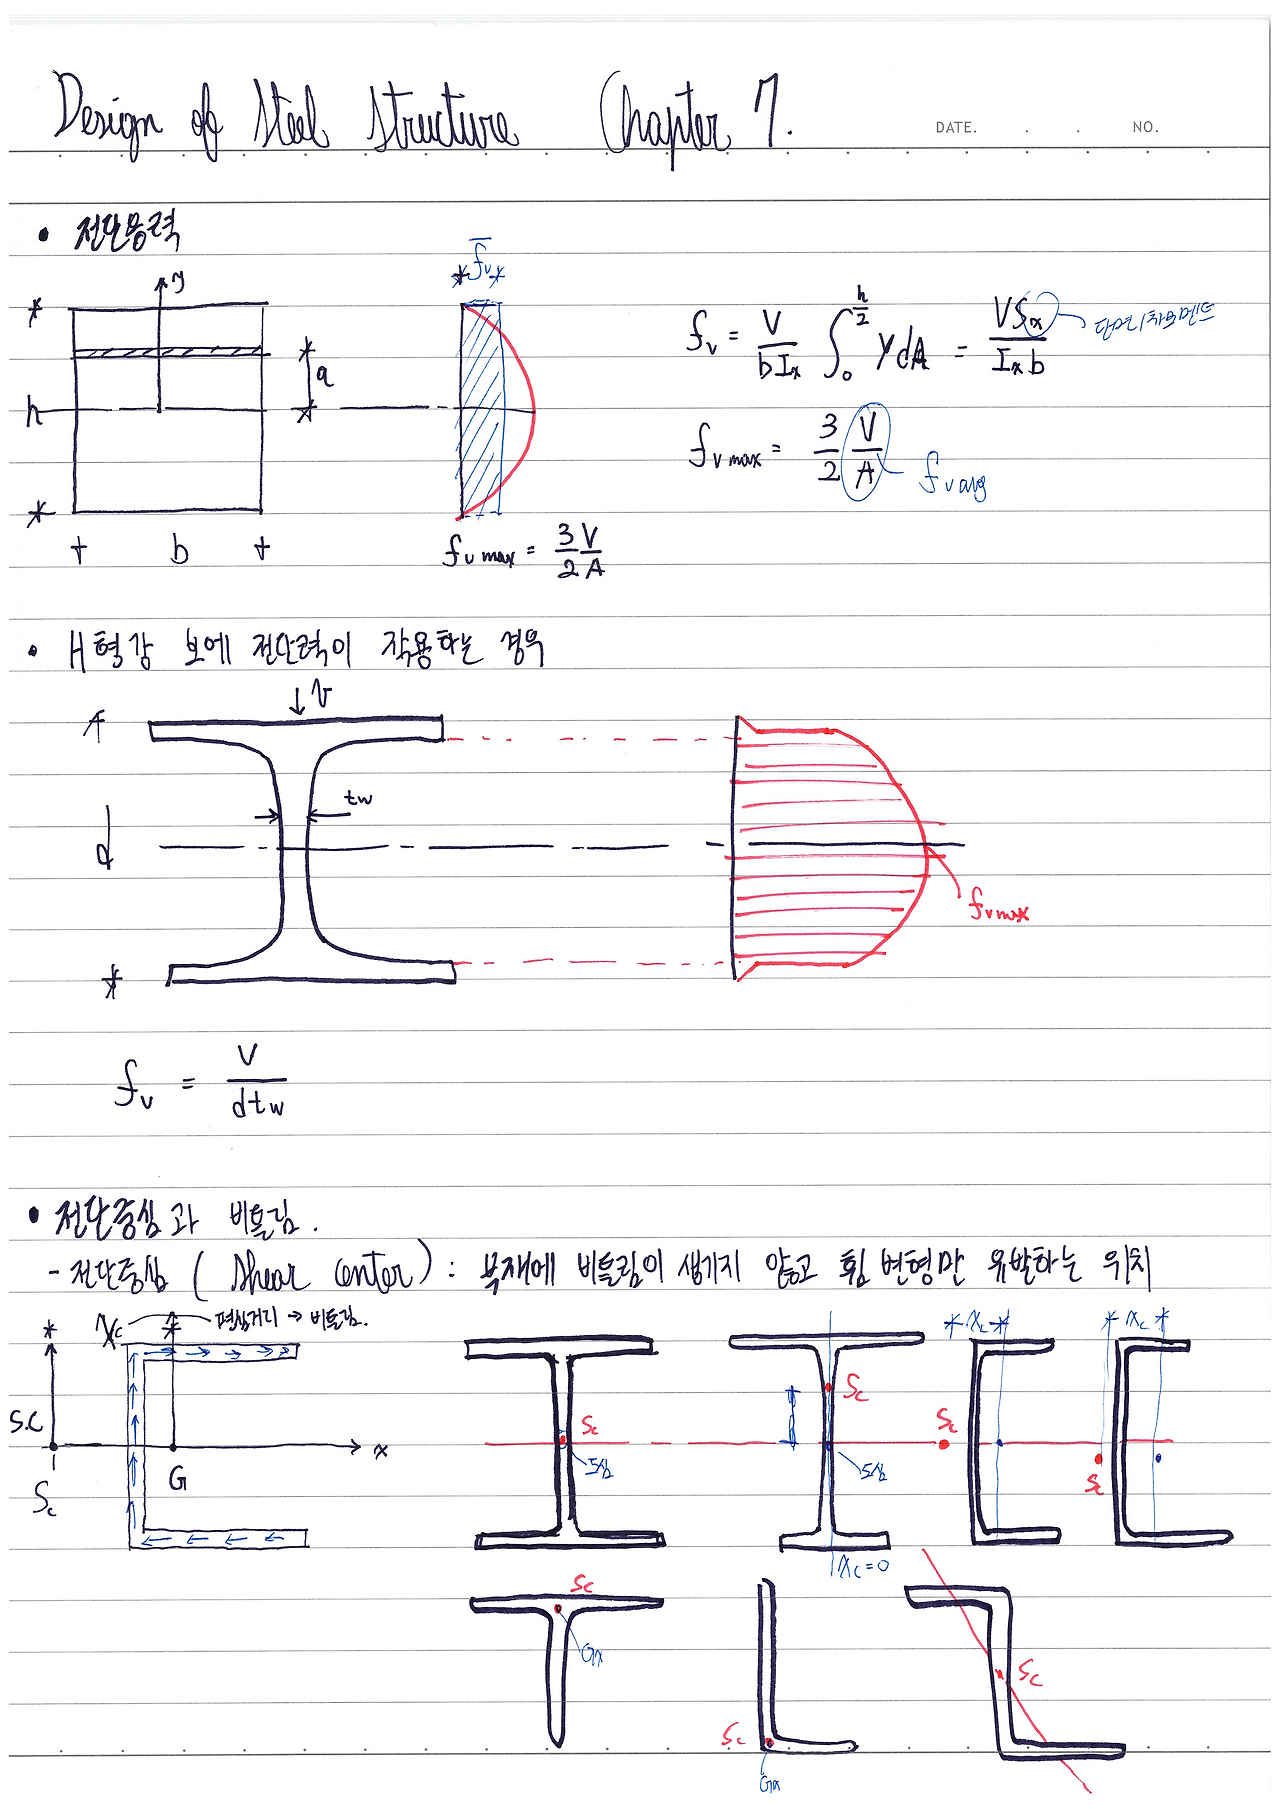 Design of Steel Structure Chapter 7.
DATE. . . NO.
• 전단응력
y
f̄v
h
a
b
fv max = 3/2 V/A
fv = V/bIx ∫0^h/2 y dA = VSx/Ix b 단면1차모멘트
fv max = 3/2 V/A fv avg
• H형강 보에 전단력이 작용하는 경우
↓ V
tw
d
fvmax
fv = V/dtw
• 전단중심과 비틀림.
- 전단중심 (Shear Center) : 부재에 비틀림이 생기지 않고 휨 변형만 유발하는 위치
Xc 편심거리 → 비틀림.
S.C
Sc
G
x
Sc
도심
Sc
도심
Xc=0
Xc
Sc
Xc
Sc
Sc
Gx
Sc
Gx
Sc